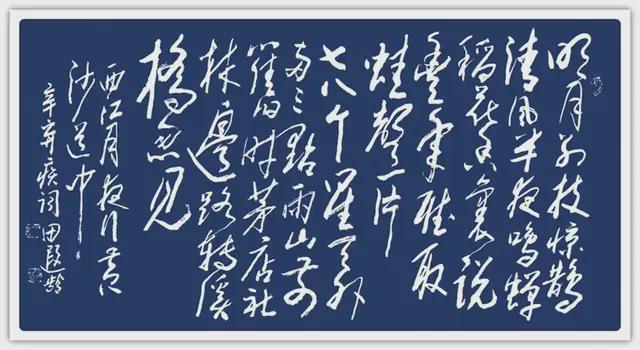 明月别枝惊鹊
清风半夜鸣蝉
稻花香裏说
豐年聽取
蛙聲一片
七八个星天外
两三點雨山前
舊时茅店社
林邊路轉溪
橋忽見
西江月夜行黄
沙道中
辛弃疾词田遐龄